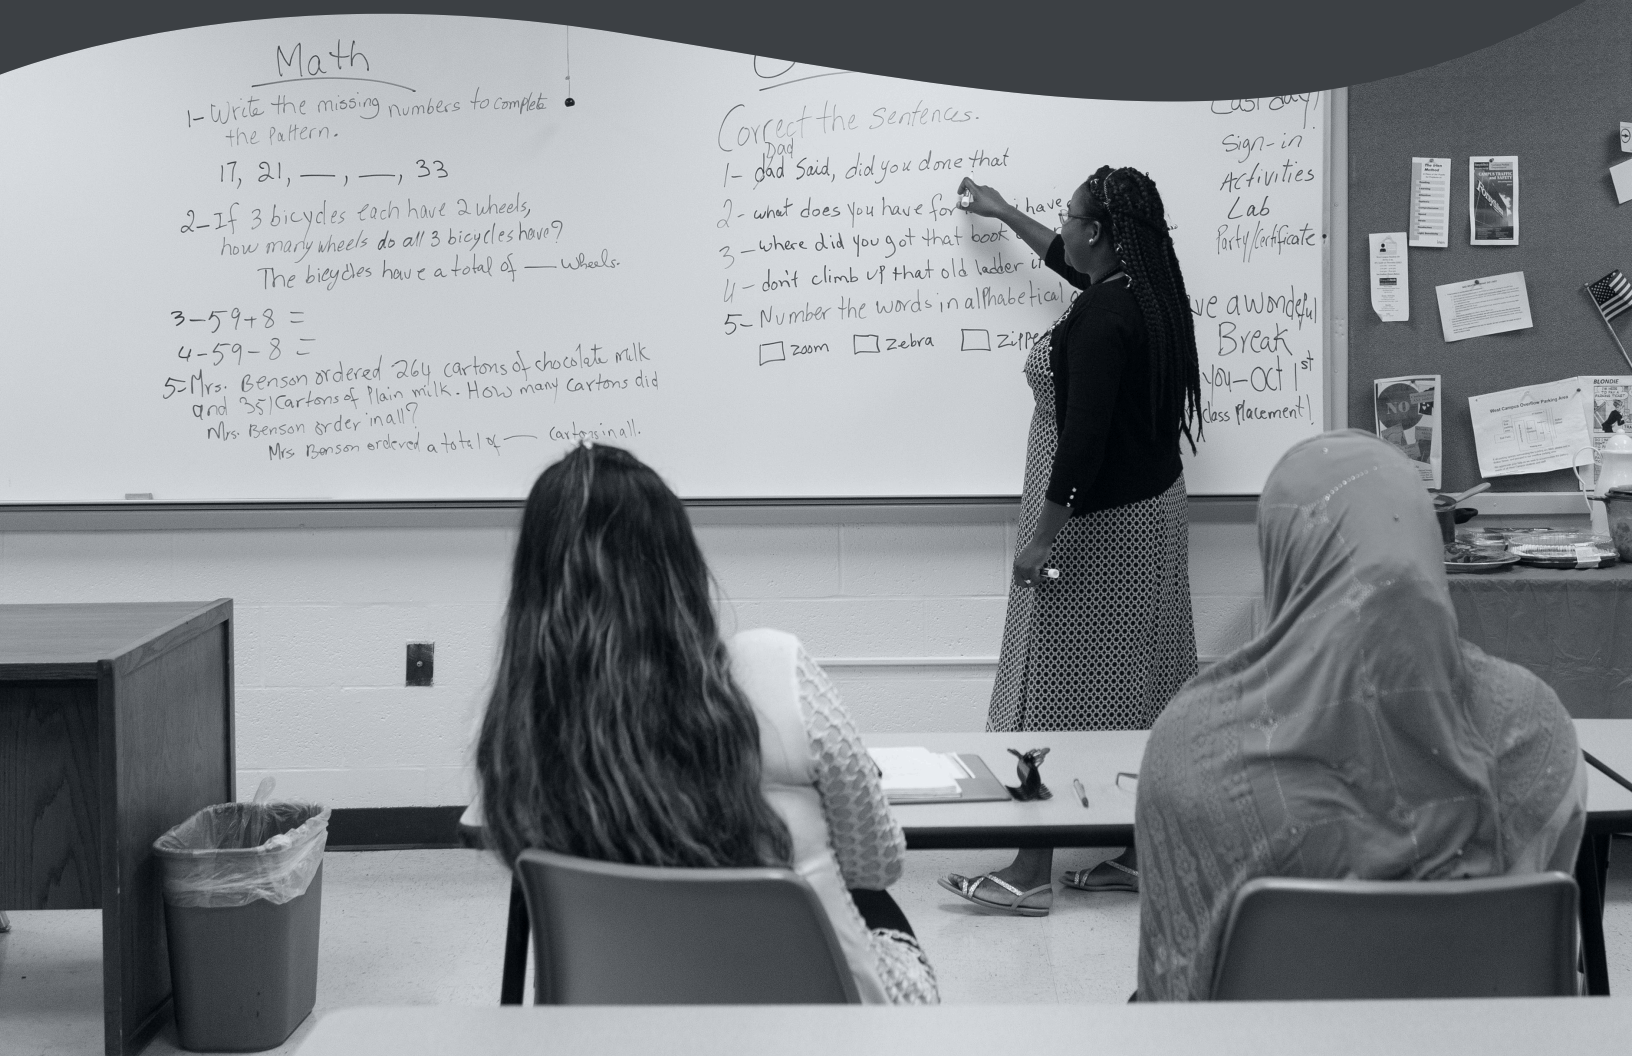 Math
1- Write the missing numbers to complete
the pattern.
17, 21, __, __, 33
2- If 3 bicycles each have 2 wheels,
how many wheels do all 3 bicycles have?
The bicycles have a total of __ wheels.
3- 59+8 =
4- 59-8 =
5- Mrs. Benson ordered 264 cartons of chocolate milk
and 351 Cartons of Plain milk. How many Cartons did
Mrs. Benson order in all?
Mrs. Benson ordered a total of __ cartons in all.
Correct the sentences.
Dad
1- dad Said, did you done that
2- what does you have for i have
3- where did you got that book
4- don't climb up that old ladder it
5- Number the words in alphabetical
zoom zebra
Last day!
Sign-in
Activities
Lab
Party/Certificate
a wondeful
Break
you-Oct 1st
class Placement!
NO
West Campus Overflow Parking Area
BLONDIE